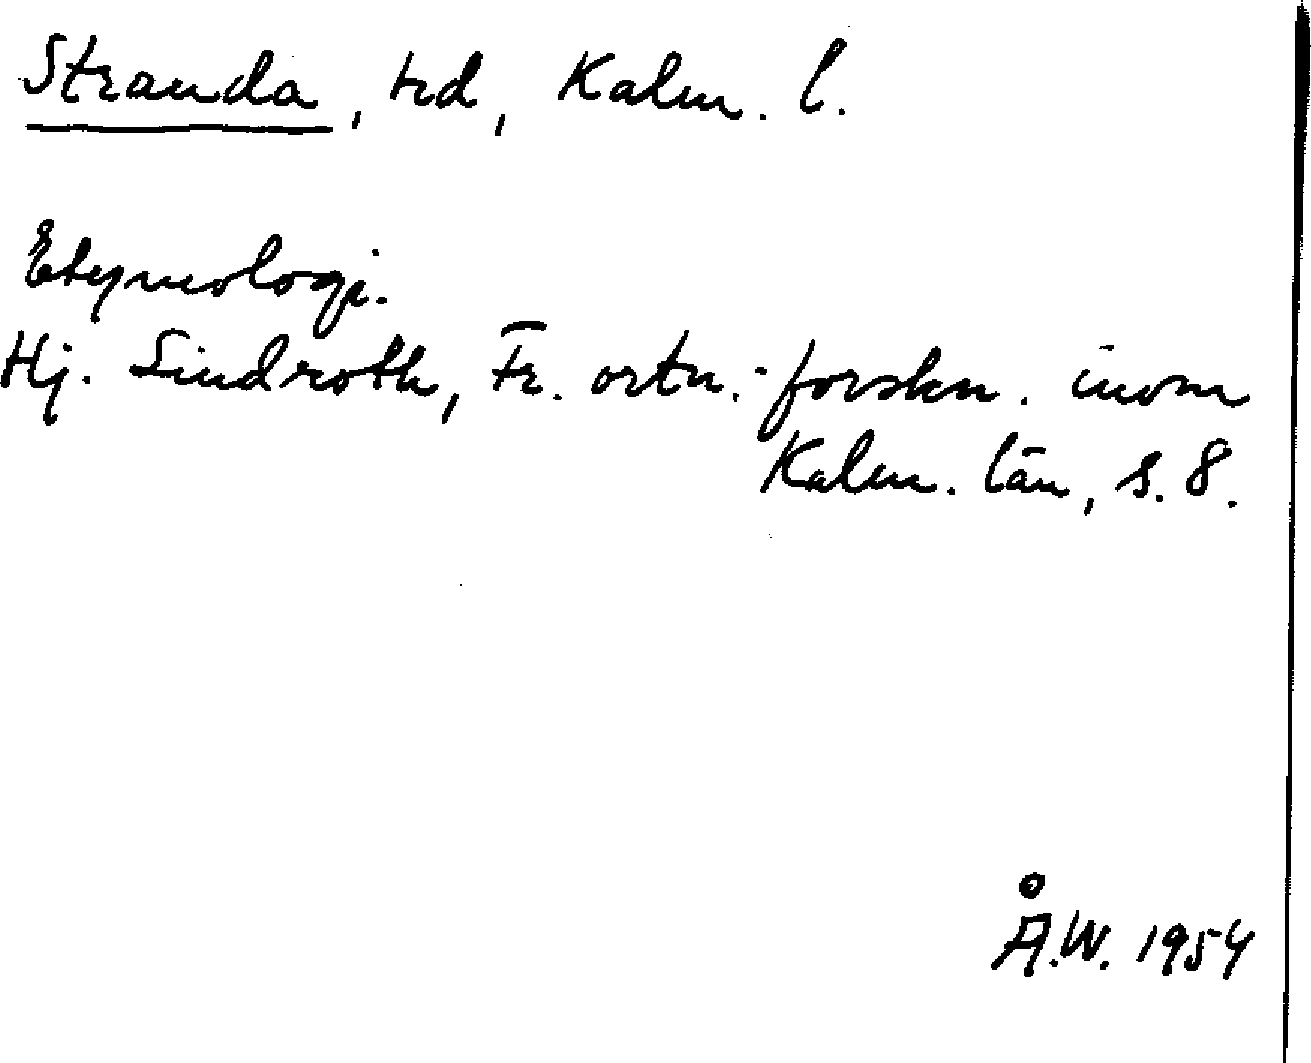 Stranda, hd, Kalm. l.
Etymologi.
Hj. Lindroth, Fr. ortn.-forskn. inom
Kalm. län, s. 8.
Å.W. 1954